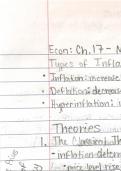 Econ: Ch. 17 - M
Types of Infla
• Inflation: increase
• Deflation: decreas
• Hyperinflation: u
Theories
1. The Classical Th
- inflation determ
price level rise